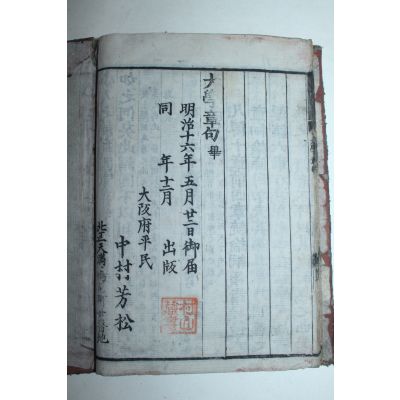 大學章句畢
明治十六年五月廿二日御届
同 年十二月 出版
大阪府平民
中村芳松